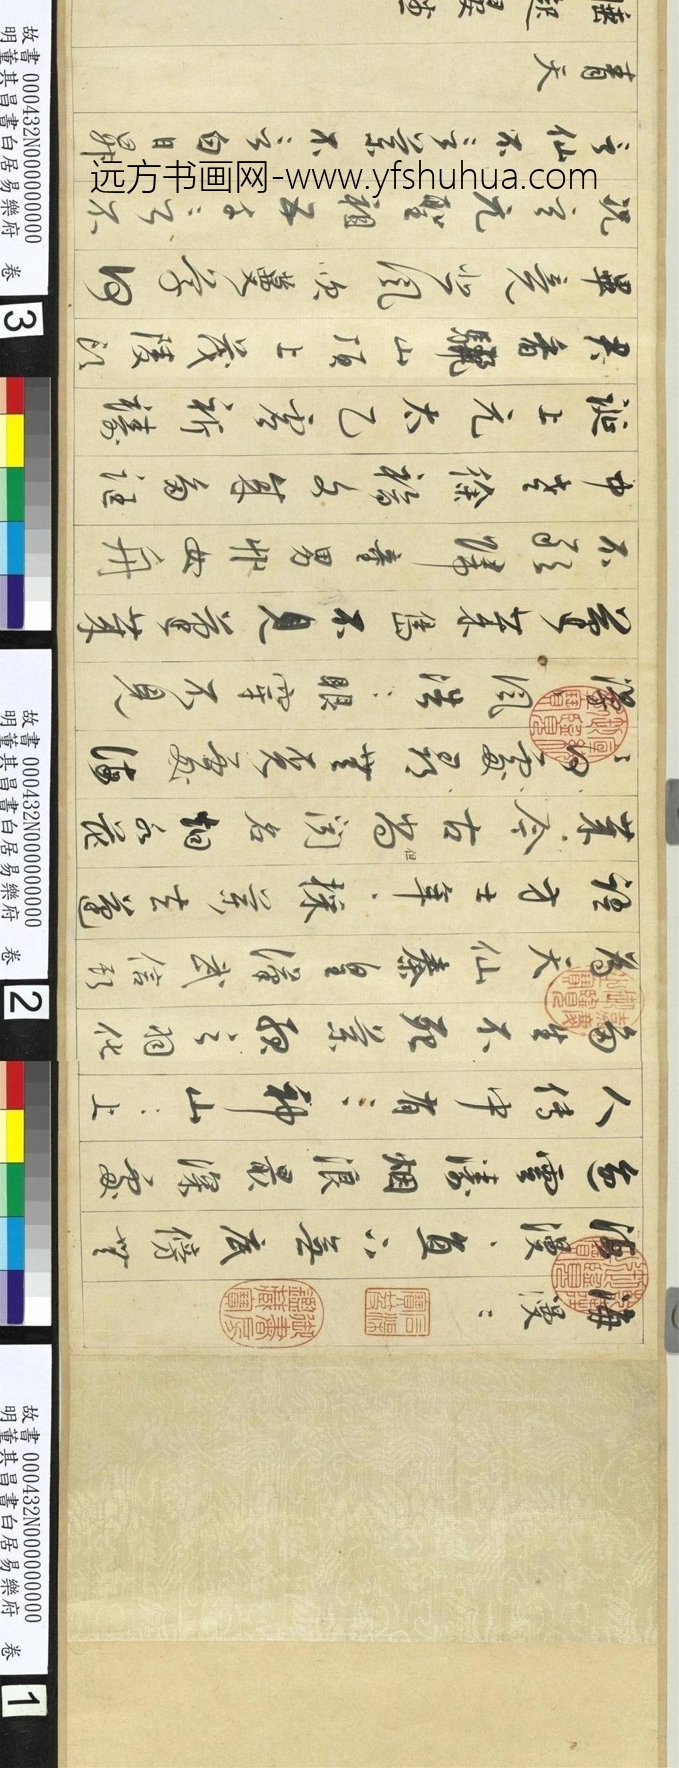 远方书画网-www.yfshuhua.com
海漫〻
海漫〻直下無底傍無
邊雲濤烟浪最深處
人傳中有三神山〻上
多生不死藥服之羽化
為天仙秦皇漢武信此
語方士年〻採藥去蓬
萊今古但聞名烟水茫
〻無覓處海
漫〻風浩〻眼穿不見
蓬萊島不見蓬萊
不敢歸童男丱女舟
中老徐福文成多誑
誕上元太乙虛祈禱
君看驪山頂上茂陵頭
畢竟悲風吹蔓草何
況玄元聖祖五千言不
言仙不言藥不言白日昇
青天
故書 000432N000000000
明董其昌書白居易樂府 卷
1
故書 000432N000000000
明董其昌書白居易樂府 卷
2
故書 000432N000000000
明董其昌書白居易樂府 卷
3